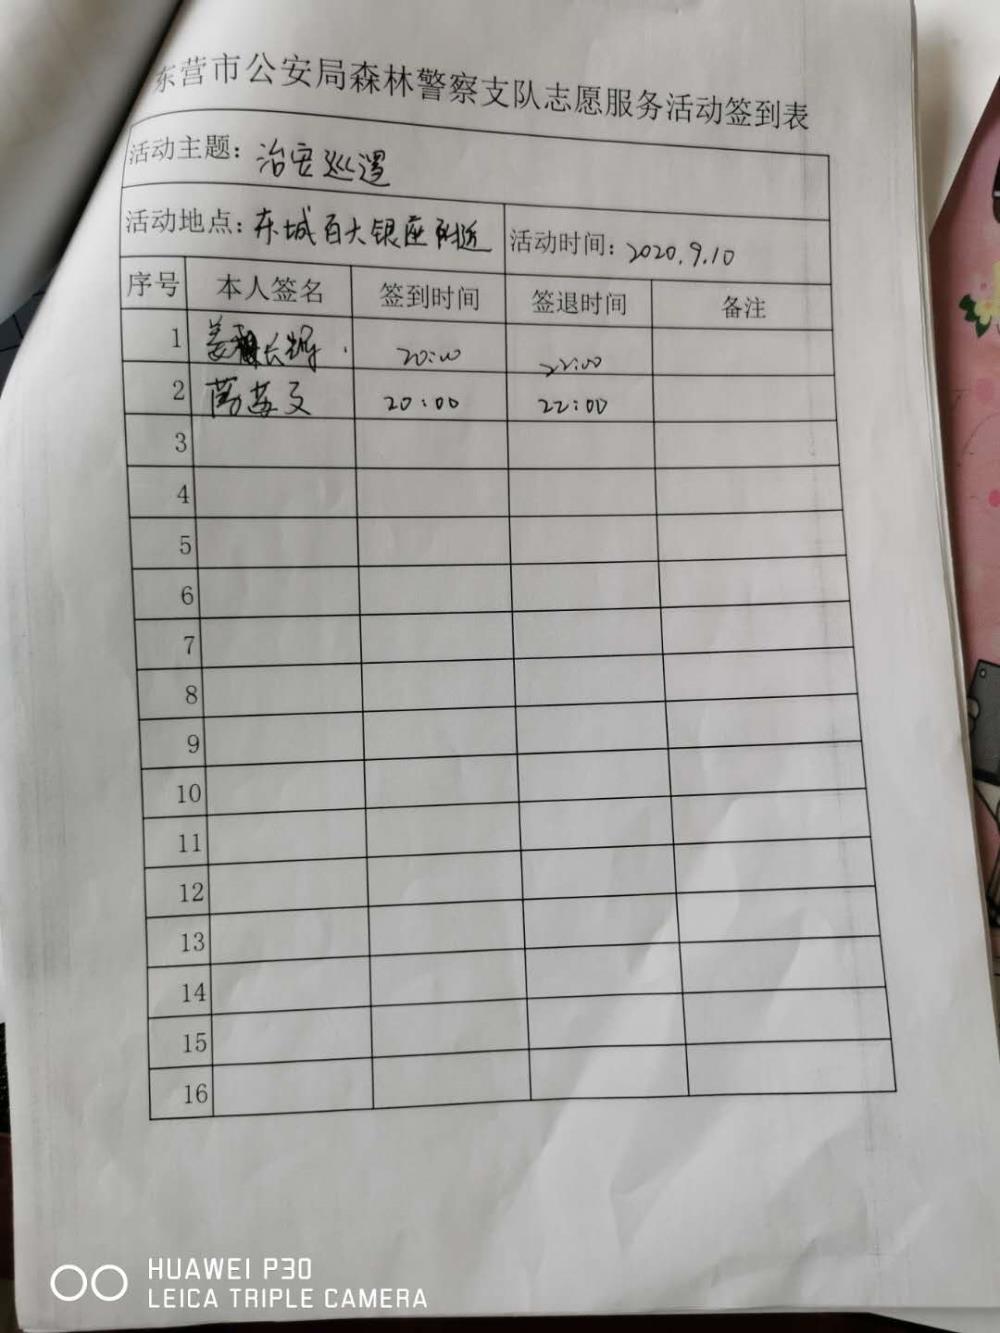 东营市公安局森林警察支队志愿服务活动签到表
活动主题：治安巡逻
活动地点：东城百大银座附近 活动时间：2020.9.10
序号 本人签名 签到时间 签退时间 备注
1 20:00 22:00
2 20:00 22:00
3
4
5
6
7
8
9
10
11
12
13
14
15
16
HUAWEI P30
LEICA TRIPLE CAMERA